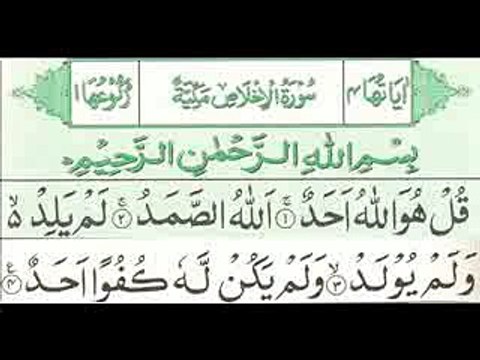 اٰيَاتُهَا ٤ سُوْرَةُ الْاِخْلَاصِ مَكِّيَّةٌ رُكُوْعُهَا ١
بِسْمِ اللّٰهِ الرَّحْمٰنِ الرَّحِيْمِ
قُلْ هُوَ اللّٰهُ اَحَدٌ ۚ ١ اَللّٰهُ الصَّمَدُ ۚ ٢ لَمْ يَلِدْ ۙ۬
وَلَمْ يُوْلَدْ ۙ ٣ وَلَمْ يَكُنْ لَّهٗ كُفُوًا اَحَدٌ ٤